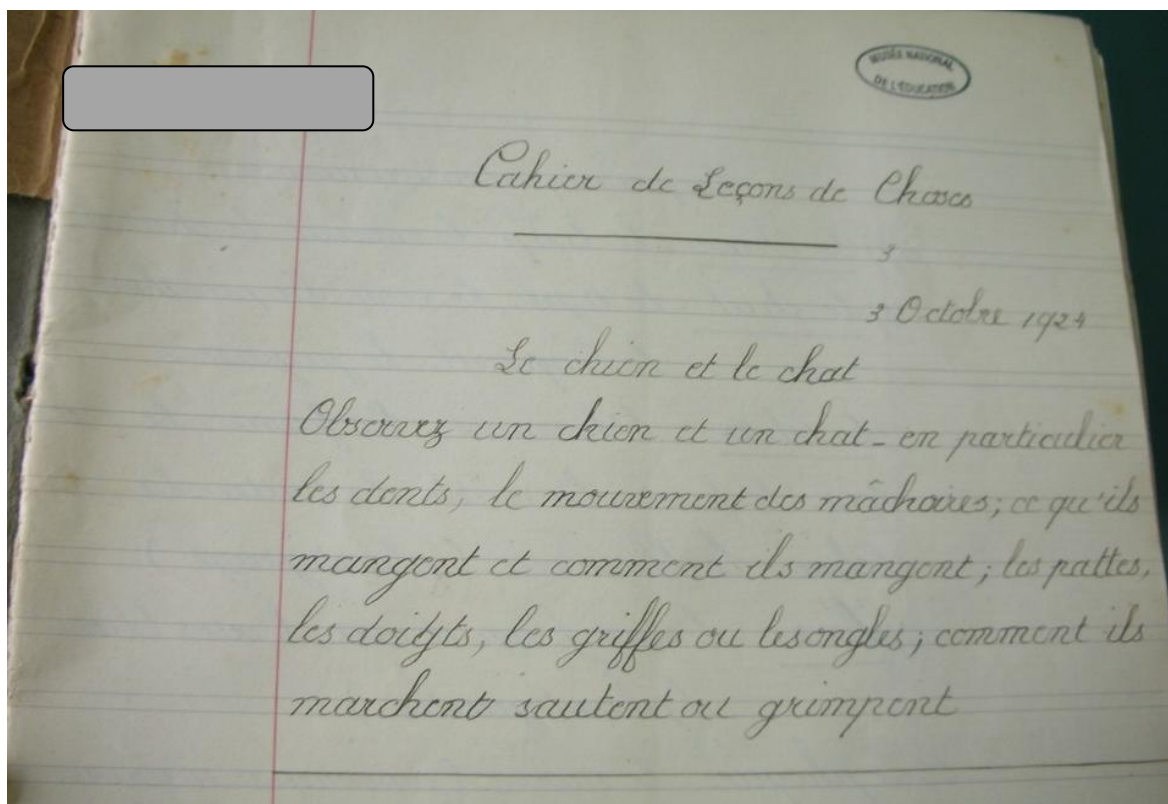 MUSÉE NATIONAL
DE L'ÉDUCATION
Cahier de Leçons de Choses
3
3 Octobre 1924
Le chien et le chat
Observez un chien et un chat - en particulier
les dents, le mouvement des mâchoires; ce qu'ils
mangent et comment ils mangent; les pattes,
les doigts, les griffes ou les ongles; comment ils
marchent sautent ou grimpent